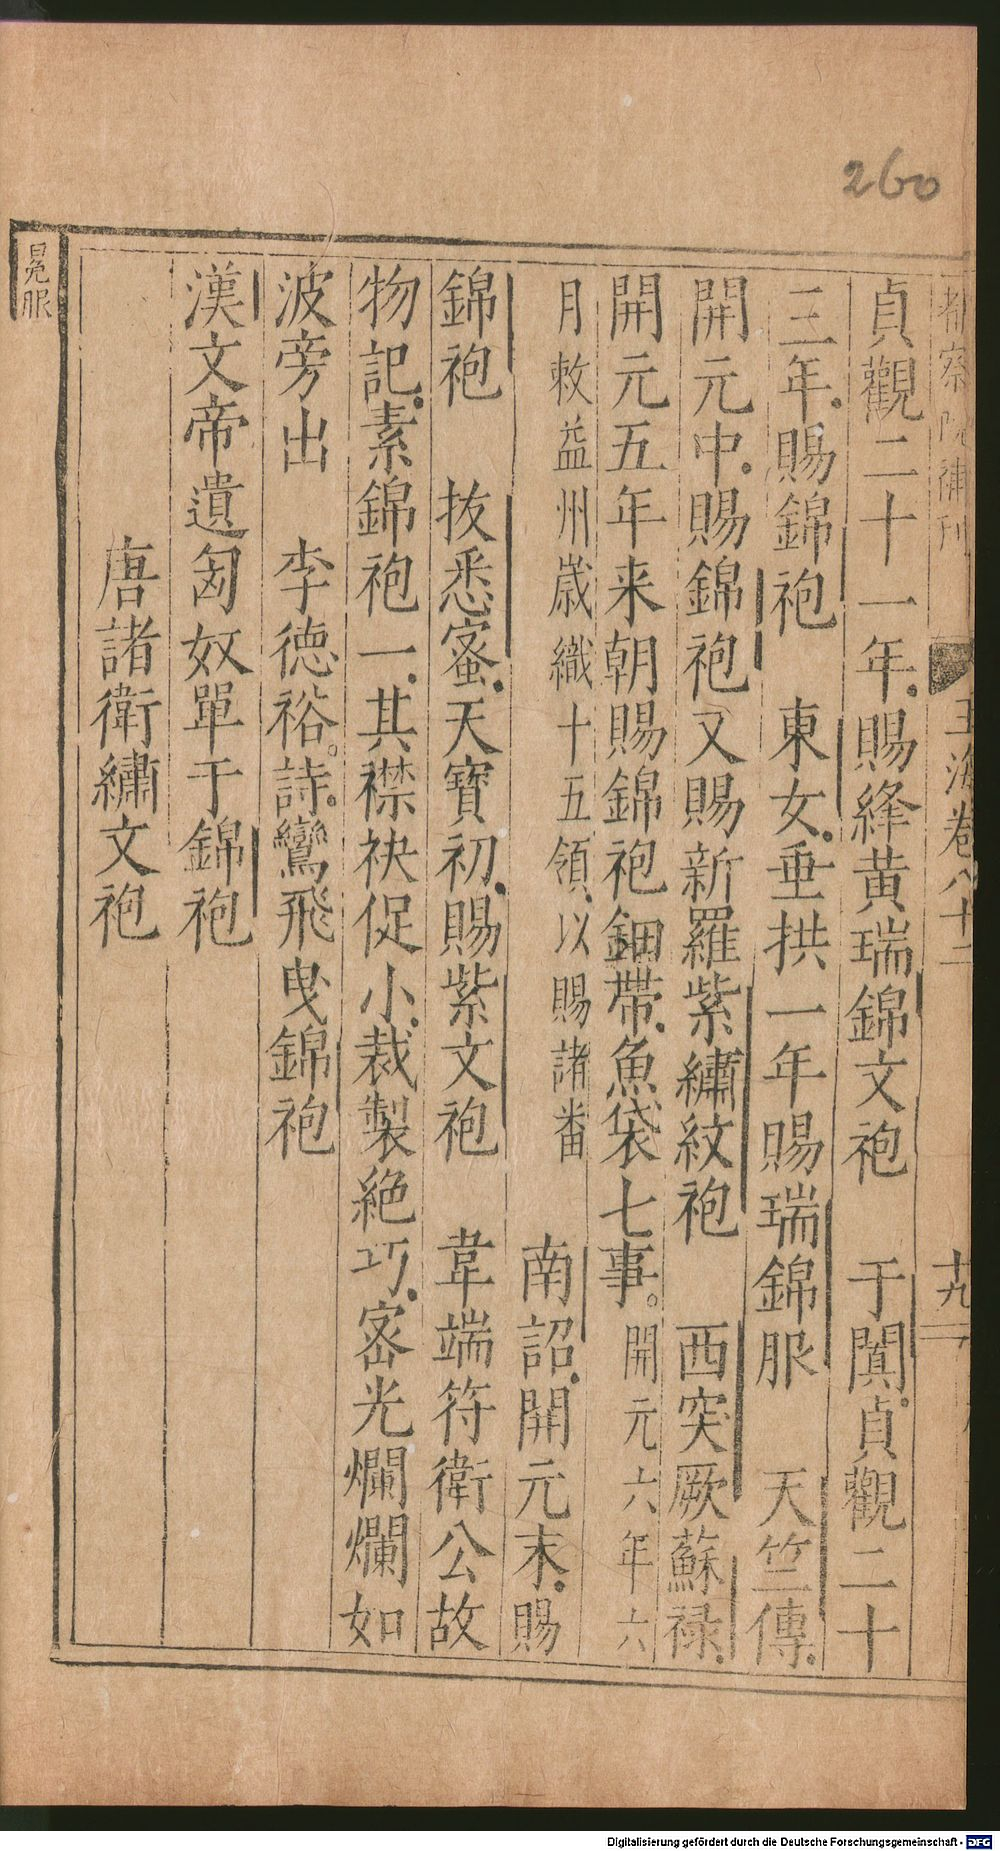 260
都察院補刊 玉海卷八十二 十九
貞觀二十一年賜絳黃瑞錦文袍 于闐貞觀二十
三年賜錦袍 東女垂拱一年賜瑞錦服 天竺傳
開元中賜錦袍 又賜新羅紫繡紋袍 西突厥蘇祿
開元五年来朝賜錦袍鈿帶魚袋七事。開元六年六
月敕益州歲織十五領以賜諸番 南詔開元末賜
錦袍 拔悉蜜天寶初賜紫文袍 韋端符衛公故
物記素錦袍一其襟袂促小裁製絶巧宻光爛爛如
波旁出 李德裕。詩鸞飛曳錦袍
漢文帝遺匈奴單于錦袍
唐諸衛繡文袍
冕服
Digitalisierung gefördert durch die Deutsche Forschungsgemeinschaft - DFG